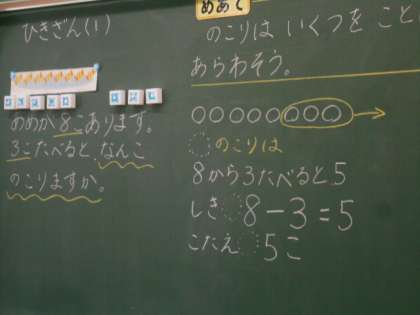 ひきざん(1)
あめが8こあります。
3こたべると、なんこ
のこりますか。
めあて
のこりは いくつを こと
あらわそう。
のこりは
8から3たべると5
しき 8-3=5
こたえ 5こ